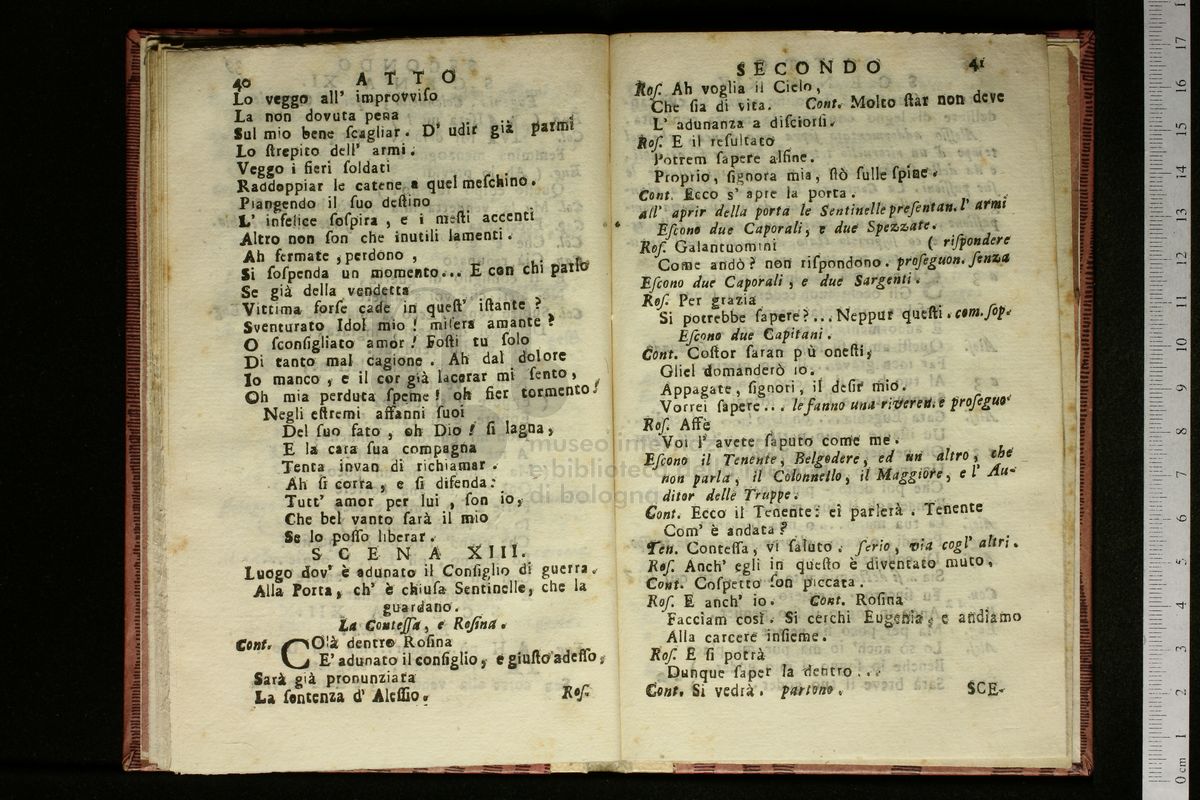 40 ATTO
Lo veggo all' improvviſo
La non dovuta pena
Sul mio bene ſcagliar. D' udir già parmi
Lo ſtrepito dell' armi.
Veggo i fieri ſoldati
Raddoppiar le catene a quel meſchino.
Piangendo il ſuo deſtino
L' infelice ſoſpira, e i meſti accenti
Altro non ſon che inutili lamenti.
Ah fermate, perdono,
Si ſoſpenda un momento... E con chi parlo
Se già della vendetta
Vittima forſe cade in queſt' iſtante?
Sventurato Idol mio! miſera amante?
O ſconſigliato amor! Foſti tu ſolo
Di tanto mal cagione. Ah dal dolore
Io manco, e il cor già lacerar mi ſento,
Oh mia perduta ſpeme! oh fier tormento!
Negli eſtremi affanni ſuoi
Del ſuo fato, oh Dio! ſi lagna,
E la cara ſua compagna
Tenta invan di richiamar.
Ah ſi corra, e ſi difenda:
Tutt' amor per lui, ſon io,
Che bel vanto ſarà il mio
Se lo poſſo liberar.
SCENA XIII.
Luogo dov' è adunato il Conſiglio di guerra.
Alla Porta, ch' è chiuſa Sentinelle, che la
guardano.
La Conteſſa, e Roſina.
Cont. COlà dentro Roſina
E' adunato il conſiglio, e giuſto adeſſo,
Sarà già pronunziata
La ſentenza d' Aleſſio. Roſ.
SECONDO 41
Roſ. Ah voglia il Cielo,
Che ſia di vita. Cont. Molto ſtar non deve
L' adunanza a diſciorſi.
Roſ. E il reſultato
Potrem ſapere alfine.
Proprio, ſignora mia, ſtò ſulle ſpine.
Cont. Ecco s' apre la porta.
all' aprir della porta le Sentinelle preſentan. l' armi
Eſcono due Caporali, e due Spezzate.
Roſ. Galantuomini ( riſpondere
Come andò? non riſpondono. proſeguon. ſenza
Eſcono due Caporali, e due Sargenti.
Roſ. Per grazia
Si potrebbe ſapere?... Neppur queſti. com. ſop.
Eſcono due Capitani.
Cont. Coſtor ſaran più oneſti,
Gliel domanderò io.
Appagate, ſignori, il deſir mio.
Vorrei ſapere... le fanno una riveren. e proſeguo
Roſ. Affè
Voi l' avete ſaputo come me.
Eſcono il Tenente, Belgodere, ed un altro, che
non parla, il Colonnello, il Maggiore, e l' Au-
ditor delle Truppe.
Cont. Ecco il Tenente: ei parlerà. Tenente
Com' è andata?
Ten. Conteſſa, vi ſaluto. ſerio, via cogl' altri.
Roſ. Anch' egli in queſto è diventato muto.
Cont. Coſpetto ſon piccata.
Roſ. E anch' io. Cont. Roſina
Facciam così. Si cerchi Eugenia, e andiamo
Alla carcere inſieme.
Roſ. E ſi potrà
Dunque ſaper la dentro...
Cont. Si vedrà. partono. SCE-
museo
e biblioteca
di bologna